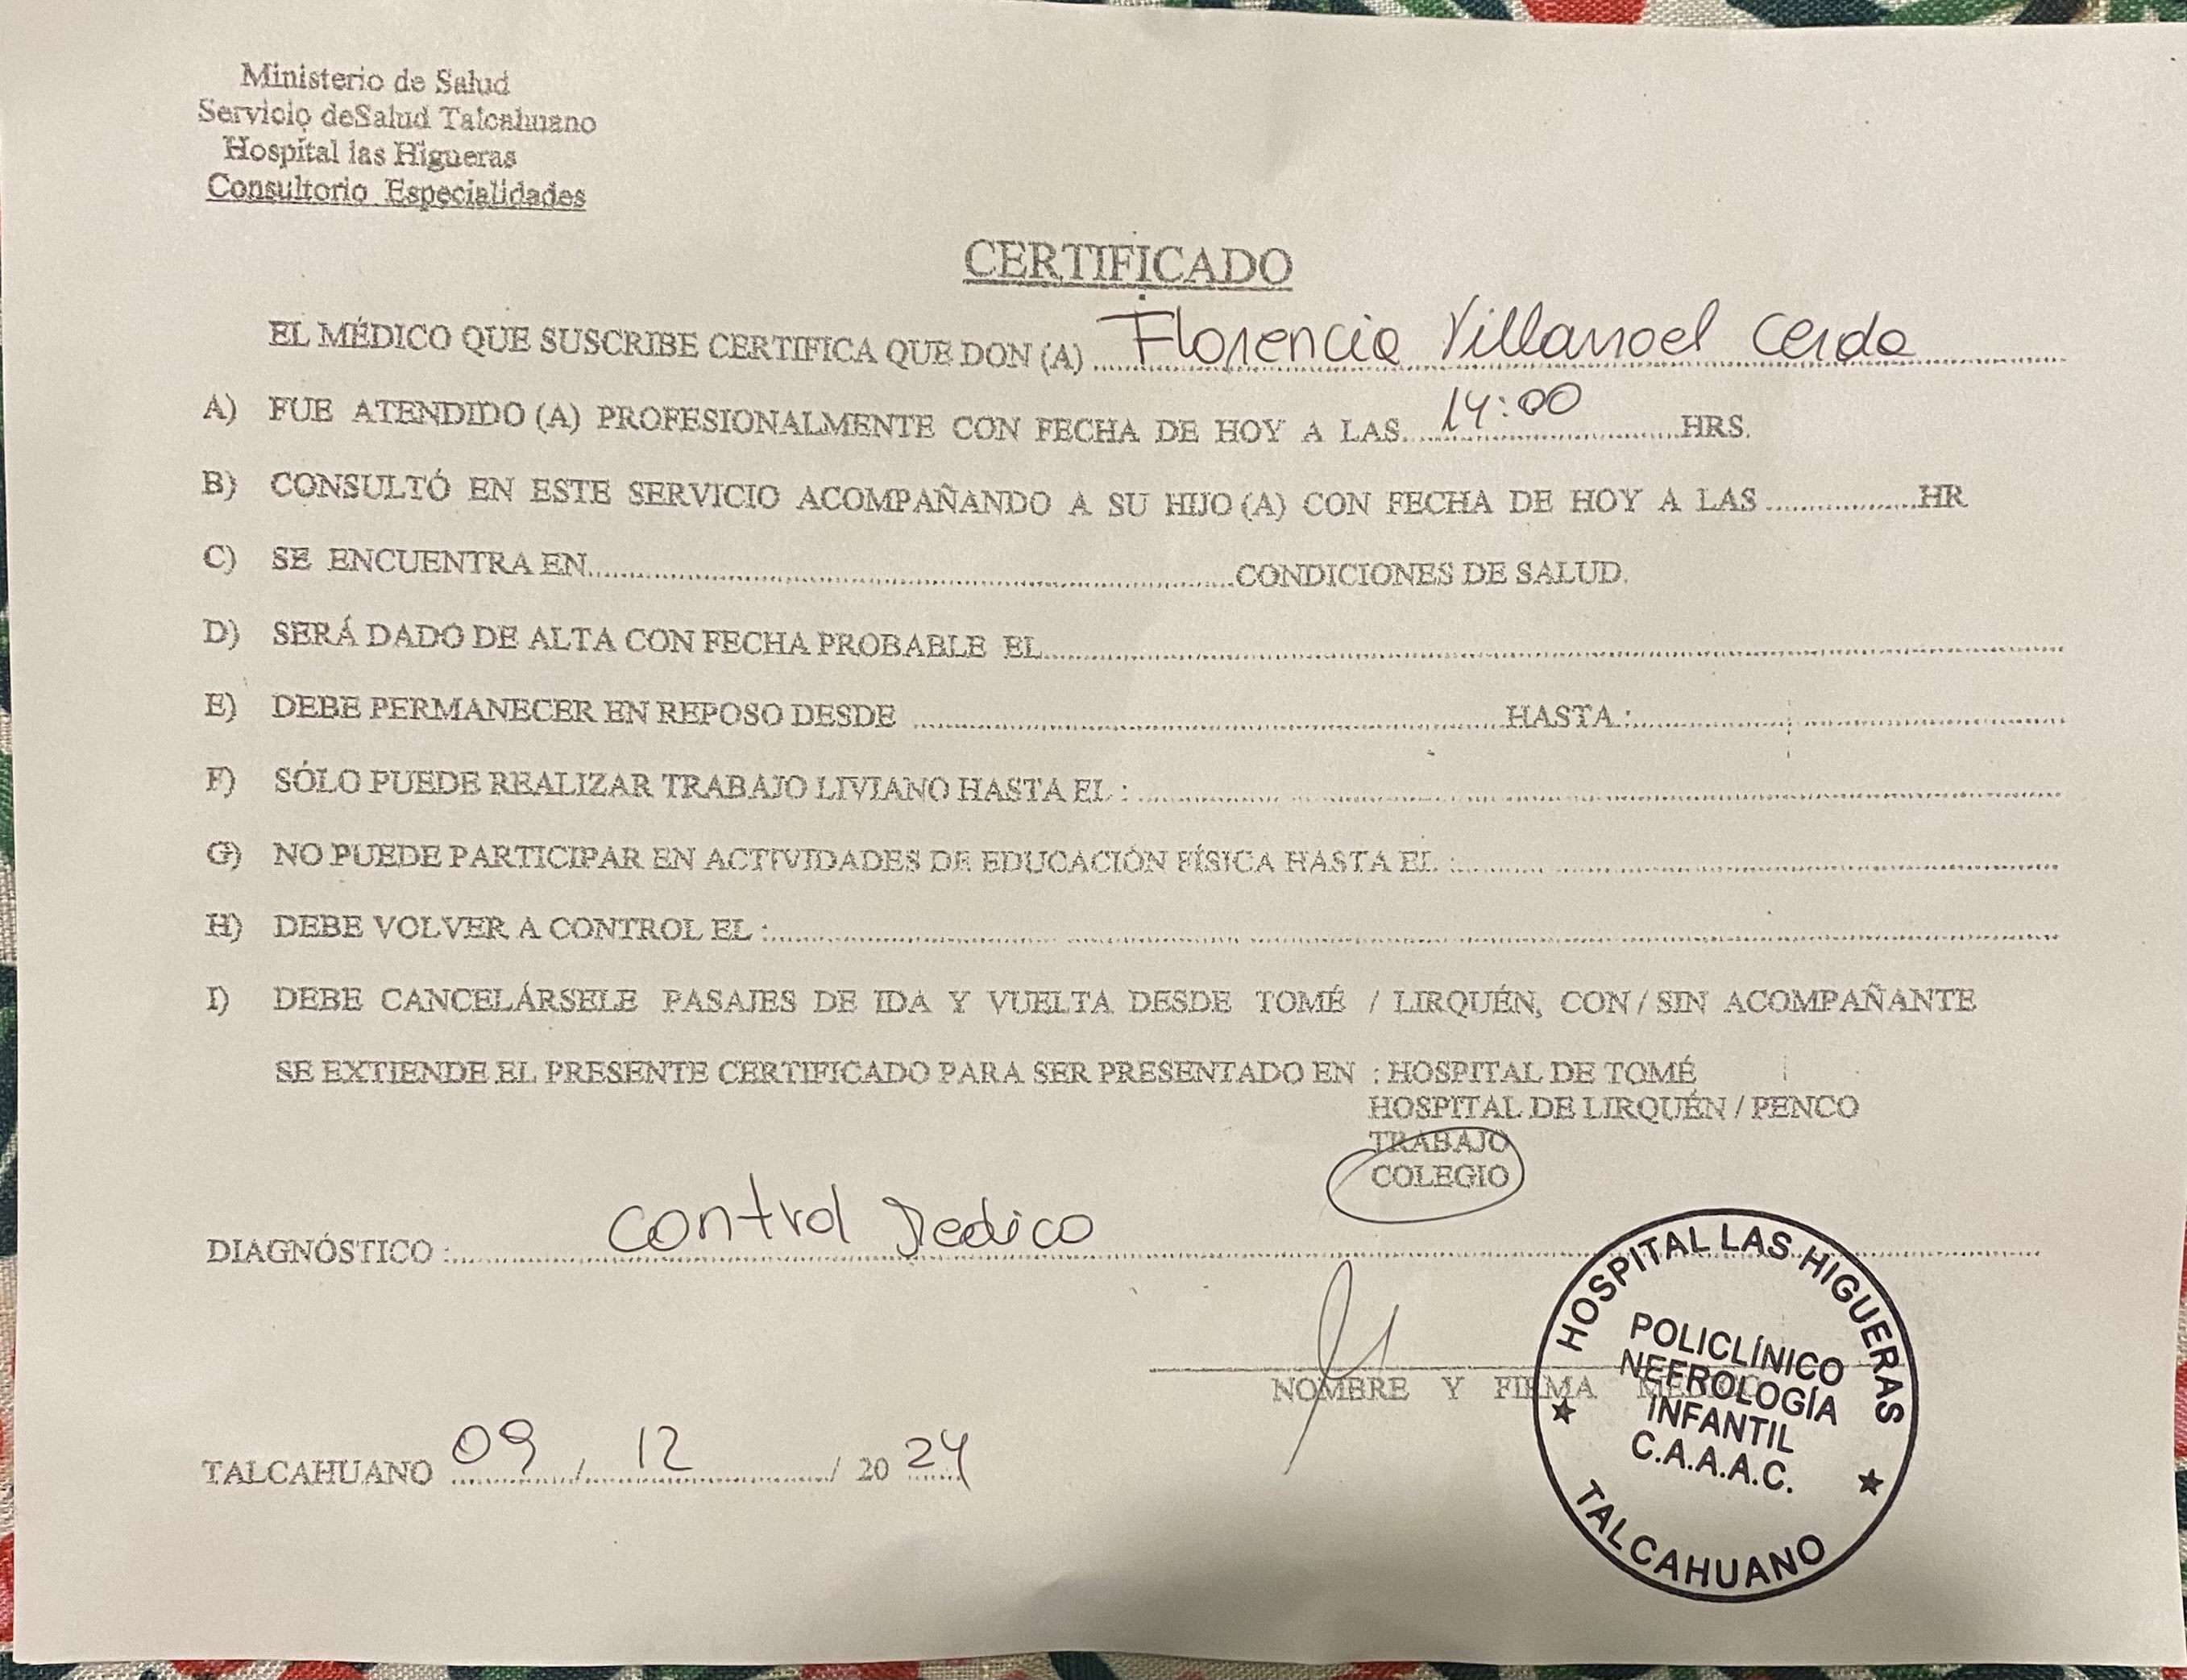 Ministerio de Salud
Servicio deSalud Talcahuano
Hospital las Higueras
Consultorio Especialidades
CERTIFICADO
EL MÉDICO QUE SUSCRIBE CERTIFICA QUE DON (A) Florencia Villarroel Cerda
A) FUE ATENDIDO (A) PROFESIONALMENTE CON FECHA DE HOY A LAS 14:00 HRS.
B) CONSULTÓ EN ESTE SERVICIO ACOMPAÑANDO A SU HIJO (A) CON FECHA DE HOY A LAS HR
C) SE ENCUENTRA EN CONDICIONES DE SALUD.
D) SERÁ DADO DE ALTA CON FECHA PROBABLE EL
E) DEBE PERMANECER EN REPOSO DESDE HASTA :
F) SÓLO PUEDE REALIZAR TRABAJO LIVIANO HASTA EL :
G) NO PUEDE PARTICIPAR EN ACTIVIDADES DE EDUCACIÓN FÍSICA HASTA EL :
H) DEBE VOLVER A CONTROL EL :
I) DEBE CANCELÁRSELE PASAJES DE IDA Y VUELTA DESDE TOMÉ / LIRQUÉN, CON / SIN ACOMPAÑANTE
SE EXTIENDE EL PRESENTE CERTIFICADO PARA SER PRESENTADO EN : HOSPITAL DE TOMÉ
HOSPITAL DE LIRQUÉN / PENCO
TRABAJO
COLEGIO
DIAGNÓSTICO : Control Medico
NOMBRE Y FIRMA
HOSPITAL LAS HIGUERAS
POLICLÍNICO
NEFROLOGÍA
INFANTIL
C.A.A.A.C.
TALCAHUANO
TALCAHUANO 09 / 12 / 20 24